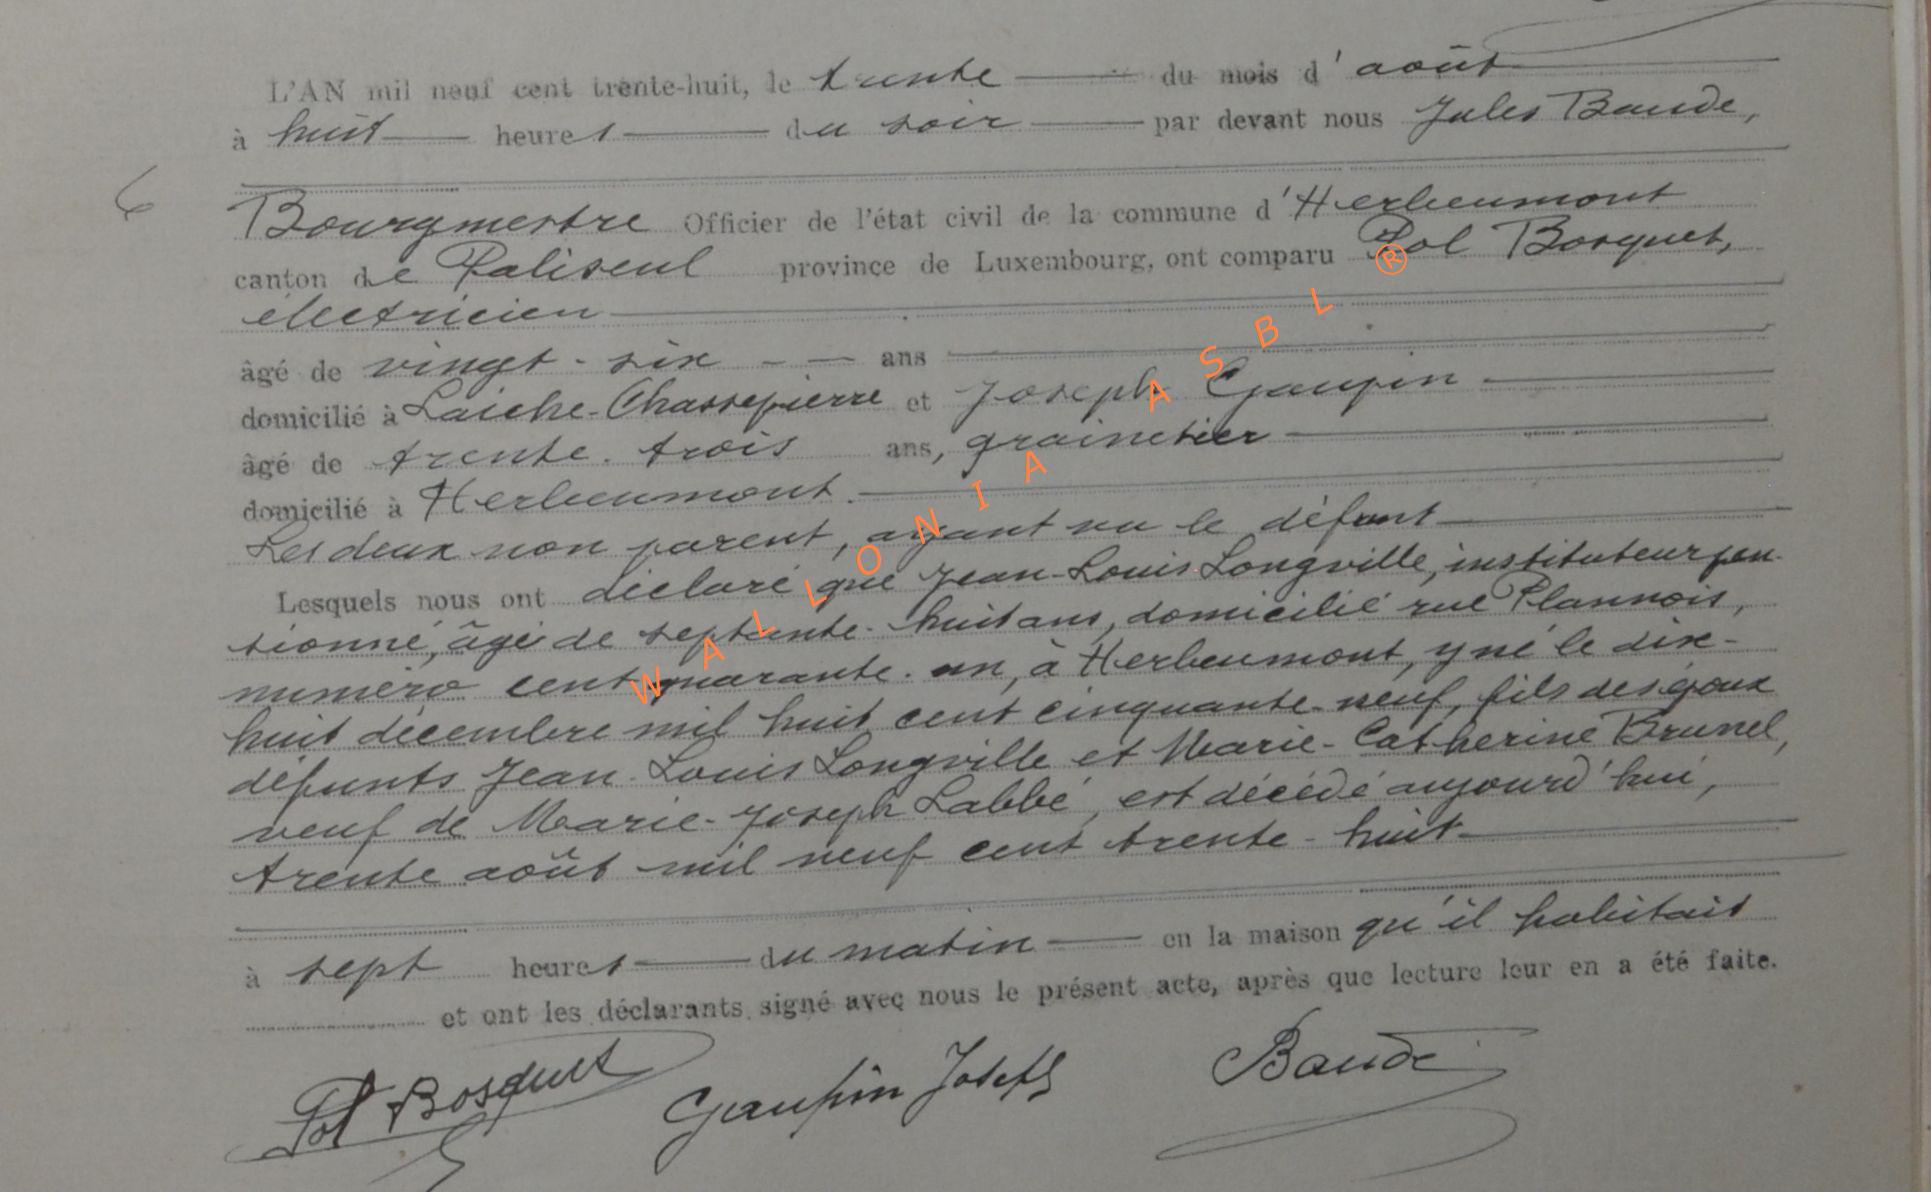 L'AN mil neuf cent trente-huit, le trente du mois d'août
à huit heures du soir par devant nous Jules Baude,
6
Bourgmestre Officier de l'état civil de la commune d'Herbeumont
canton de Paliseul province de Luxembourg, ont comparu Pol Bosquet,
électricien
âgé de vingt-six ans
domicilié à Laiche-Chassepierre et Joseph Gaupin
âgé de trente-trois ans, grainetier
domicilié à Herbeumont.
Les deux non parent, ayant vu le défunt
Lesquels nous ont déclaré que Jean-Louis Longville, instituteur pen-
sionné, âgé de septante-huit ans, domicilié rue Plannois,
numéro cent quarante-un, à Herbeumont, y né le dix-
huit décembre mil huit cent cinquante-neuf, fils des époux
défunts Jean-Louis Longville et Marie-Catherine Brunel,
veuf de Marie-Joseph Labbé, est décédé aujourd'hui,
trente août mil neuf cent trente-huit
à sept heures du matin en la maison qu'il habitait
et ont les déclarants signé avec nous le présent acte, après que lecture leur en a été faite.
Pol Bosquet Gaupin Joseph Baude
WALLONIA ASBL ®